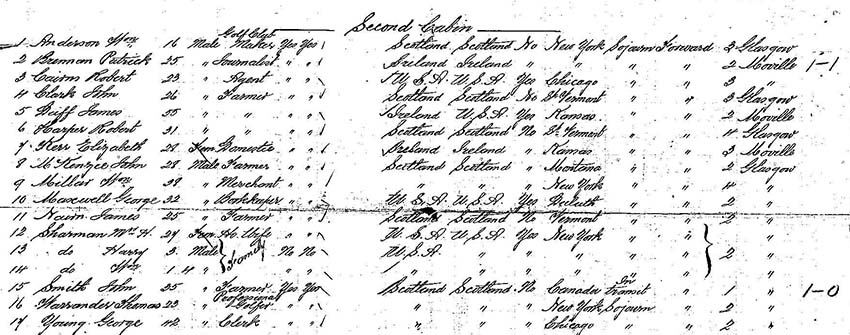 Second Cabin
1 Anderson Wm 16 Male Golf Club Maker Yes Yes Scotland Scotland No New York Sojourn Forward 3 Glasgow
2 Brennan Patrick 25 " Journalist " " Ireland Ireland " " " " 2 Moville 1-1
3 Cairns Robert 23 " Agent " " U.S.A. U.S.A. Yes Chicago " 3
4 Clark John 26 " Farmer " " Scotland Scotland No Vermont " " 3 Glasgow
5 James 55 " " " " Ireland U.S.A. Yes Kansas " " 2 Moville
6 Harper Robert 31 " " " " Scotland Scotland No Vermont " " 4 Glasgow
7 Kerr Elizabeth 21 Fem Domestic " " Ireland Ireland " Kansas " " 3 Moville
8 McKenzie John 28 Male Farmer " " Scotland Scotland " Montana " " 2 Glasgow
9 Millar Wm 38 " Merchant " " " " " New York " " 4 "
10 Maxwell George 32 " Bookkeeper " " U.S.A. U.S.A. Yes Duluth " " 2 "
11 Nairn James 25 " Farmer " " Scotland Scotland No Vermont " " 2 "
12 Sharman Mrs H. 27 Fem H. Wife " " U.S.A. U.S.A. Yes New York " " "
13 do Harry 3 Male Family No No U.S.A. " " " " 2 "
14 do Wm 1 " " " " " " " " "
15 Smith John 25 " Farmer Yes Yes Scotland Scotland No Canada In transit " 1 " 1-0
16 Warrander Thomas 23 " Professional Golfer " " " " " New York Sojourn " 2 "
17 Young George 42 " Clerk " " " " " Chicago " " 2 "